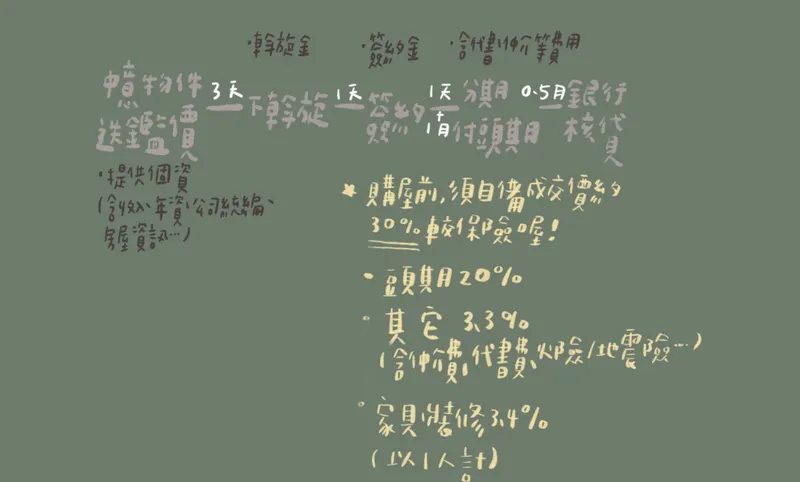 ·斡旋金 ·簽約金 ·含代書、仲介等費用
中意物件 3天 下斡旋 1天 簽約 1天 分期 0.5月 銀行
送鑑價 1月 付頭期 核貸
·提供個資
(含收入、年資、公司統編、
房屋資訊…)
★ 購屋前,須自備成交價約
30%較保險喔!
·頭期20%
·其它 3.3%
(含仲介費、代書費、火險/地震險…)
·家具裝修3.4%
(以1人計)